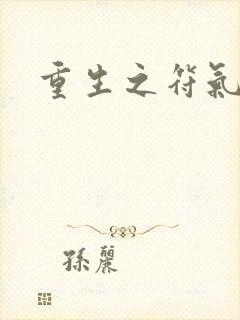 重生之符氣
孫麗